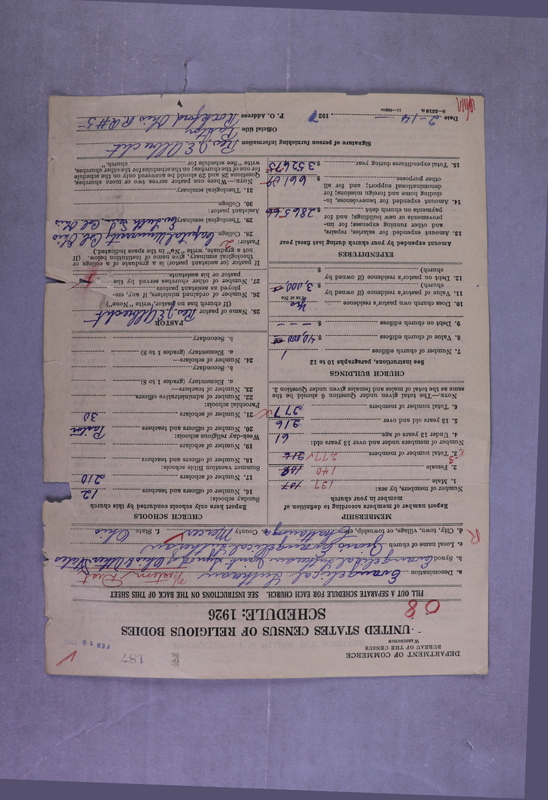 187
FEB 16
DEPARTMENT OF COMMERCE
BUREAU OF THE CENSUS
WASHINGTON
UNITED STATES CENSUS OF RELIGIOUS BODIES
SCHEDULE: 1926
08
FILL OUT A SEPARATE SCHEDULE FOR EACH CHURCH. SEE INSTRUCTIONS ON THE BACK OF THIS SHEET
a. Denomination Evangelical Lutheran
b. Synod Evangelical Lutheran Joint Synod of Ohio & Other States
c. Local name of church Grace Evangelical Lutheran
d. City, town, village, or township, etc. County Mercer State Ohio
MEMBERSHIP
Report number of members according to definition of member in your church
Number of members, by sex:
1. Male 137
2. Female 140
3. Total number of members 277
4. Under 13 years of age 61
5. 13 years old and over 216
6. Total number of members 277
NOTE.—The total given under Question 6 should be the
same as the total of males and females given under Question 3.
CHURCH BUILDINGS
See instructions, paragraphs 10 to 12
7. Number of church edifices 1
8. Value of church edifices $ 40,000
9. Debt on church edifices $ ---
10. Does church own pastor's residence Yes
11. Value of pastor's residence (if owned by
church) $ 3,000
12. Debt on pastor's residence (if owned by
church) $
EXPENDITURES
Amount expended by your church during last fiscal year
13. Amount expended for salaries, repairs,
and other running expenses; for im-
provements or new buildings; and for
payments on church debt $ 2865.66
14. Amount expended for benevolences, in-
cluding home and foreign missions; for
denominational support; and for all
other purposes $ 661.09
15. Total expenditures during year $ 3526.75
CHURCH SCHOOLS
Report here only schools conducted by this church
Sunday schools:
16. Number of officers and teachers 12
17. Number of scholars 210
Summer vacation Bible schools:
18. Number of officers and teachers
19. Number of scholars
Week-day religious schools:
20. Number of officers and teachers Pastor
21. Number of scholars 30
Parochial schools:
22. Number of administrative officers
23. Number of teachers—
a. Elementary (grades 1 to 8)
b. Secondary
24. Number of scholars—
a. Elementary (grades 1 to 8)
b. Secondary
PASTOR
25. Name of pastor Rev. J. E. Albrecht
(If church has no pastor, write "None")
26. Number of ordained ministers, if any, em-
ployed as assistant pastors
27. Number of other churches served by the
pastor or his assistants
If pastor or assistant pastor is a graduate of a college or
theological seminary, give name of institution below. (If
not a graduate, write "No" in the space indicated.)
Pastor:
28. College Capital University Col. Ohio
29. Theological seminary Ev. Luth. Sem. Col. Ohio
Assistant pastor:
30. College
31. Theological seminary
NOTE.—Where one pastor serves two or more churches,
Questions 28 and 29 should be answered only on the schedule
for one of the churches; on the schedules for the other churches,
write "See schedule for church."
Signature of person furnishing information Rev. J. E. Albrecht
Official title Pastor
Date 2-14-, 1927
P. O. Address Rockford Ohio R.D. #5